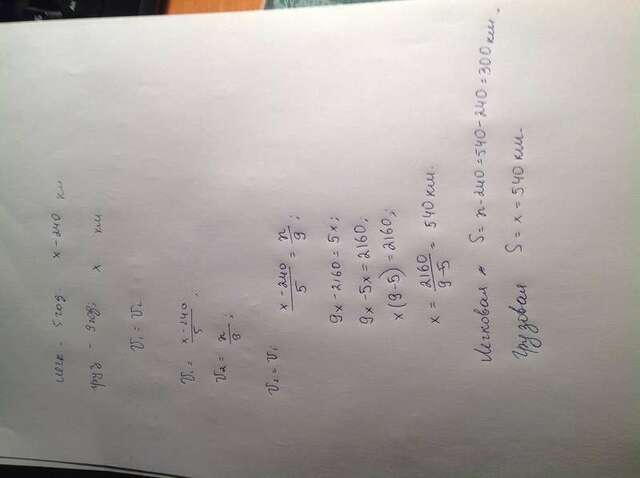 легк - 5 год. x - 240 км
груз - 9 год; x км
V₁ = V₂
V₁ = x-240/5 ;
V₂ = x/9 ;
V₂ = V₁ x-240/5 = x/9 ;
9x - 2160 = 5x;
9x - 5x = 2160;
x(9-5) = 2160;
x = 2160/9-5 = 540 км.
Легковая S = x-240 = 540-240 = 300 км.
Грузовая S = x = 540 км.